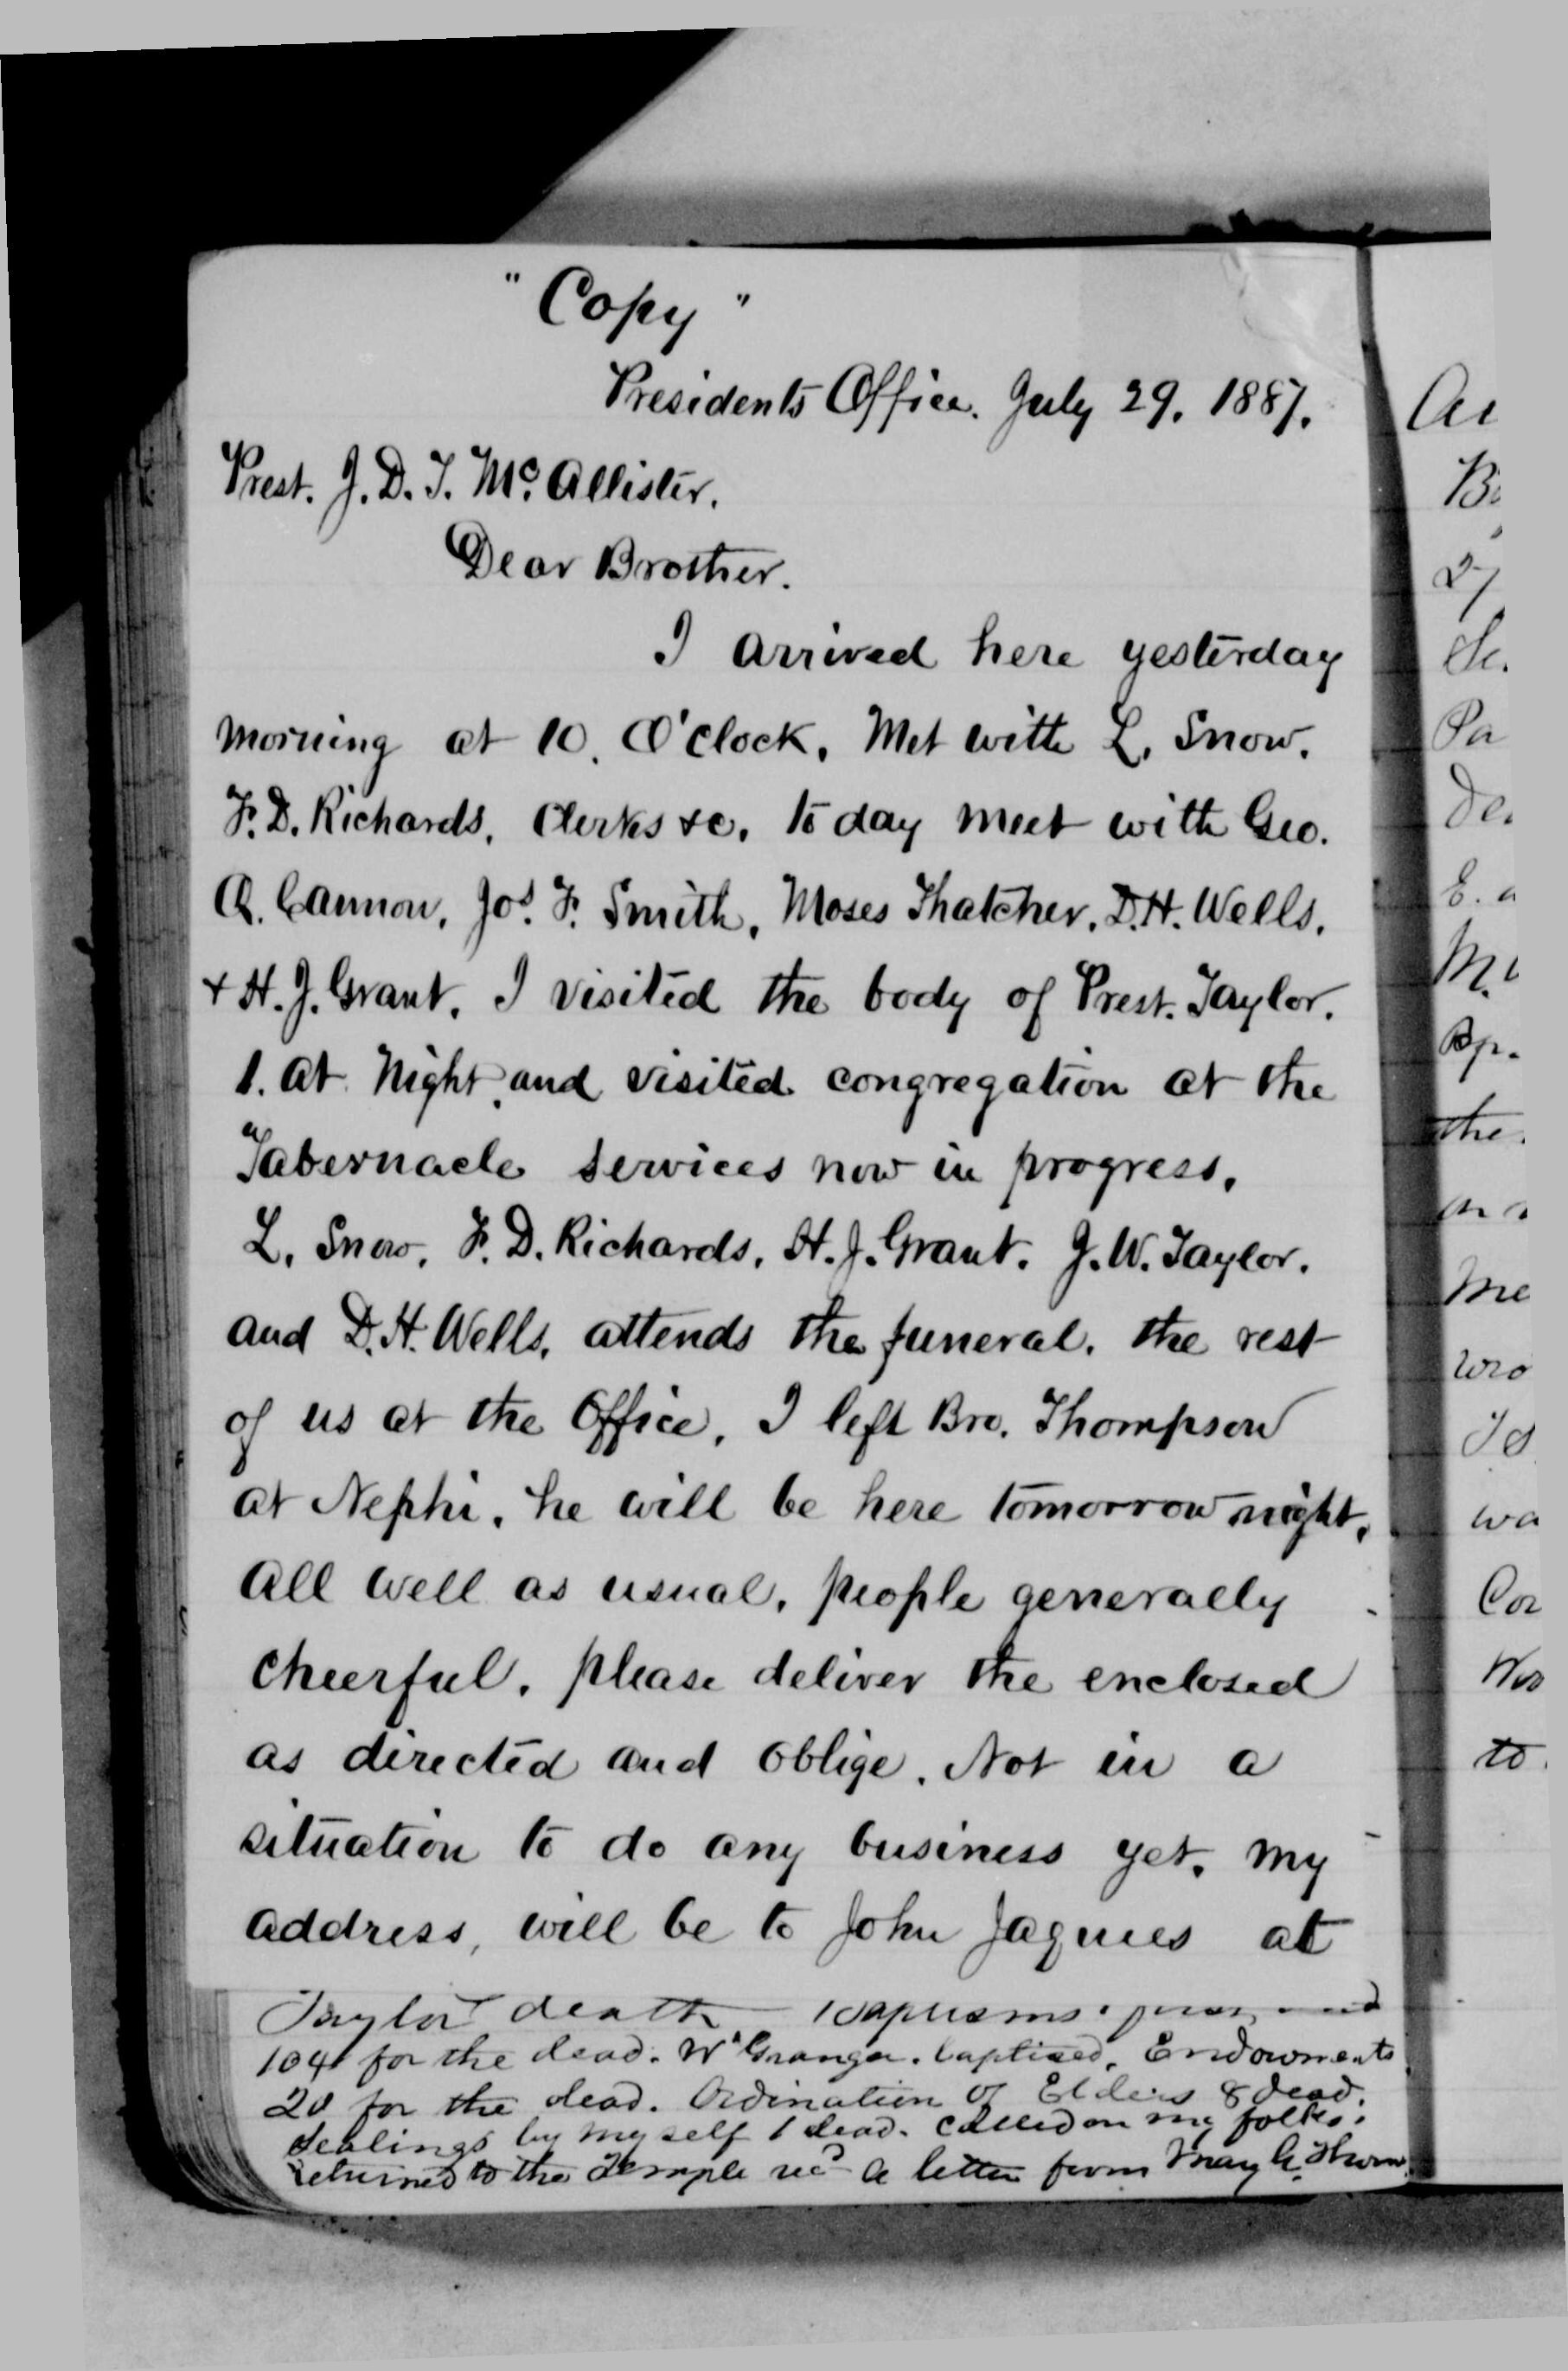 " Copy "
Presidents Office. July 29. 1887.
Prest. J. D. T. Mc. Allister.
Dear Brother.
I arrived here yesterday
morning at 10. O'Clock. Met with L. Snow.
F. D. Richards, Clerks &c. to day meet with Geo.
Q. Cannon, Jos. F. Smith, Moses Thatcher, D.H. Wells,
& H. J. Grant. I visited the body of Prest. Taylor.
1. at Night, and visited congregation at the
Tabernacle services now in progress.
L. Snow, F. D. Richards, H. J. Grant. J. W. Taylor.
and D. H. Wells, attends the funeral. the rest
of us at the Office. I left Bro. Thompson
at Nephi. he will be here tomorrow night.
all well as usual, people generally
cheerful. please deliver the enclosed
as directed and oblige. Not in a
situation to do any business yet. my
address, will be to John Jaques at
Taylor death Baptisms
104 for the dead. Wm Granger. baptised. Endowments
20 for the dead. Ordination of Elders 8 dead.
Sealings by myself 1 dead. called on my folks.
returned to the Temple recd a letter from May
the
Me
wro
wa
to